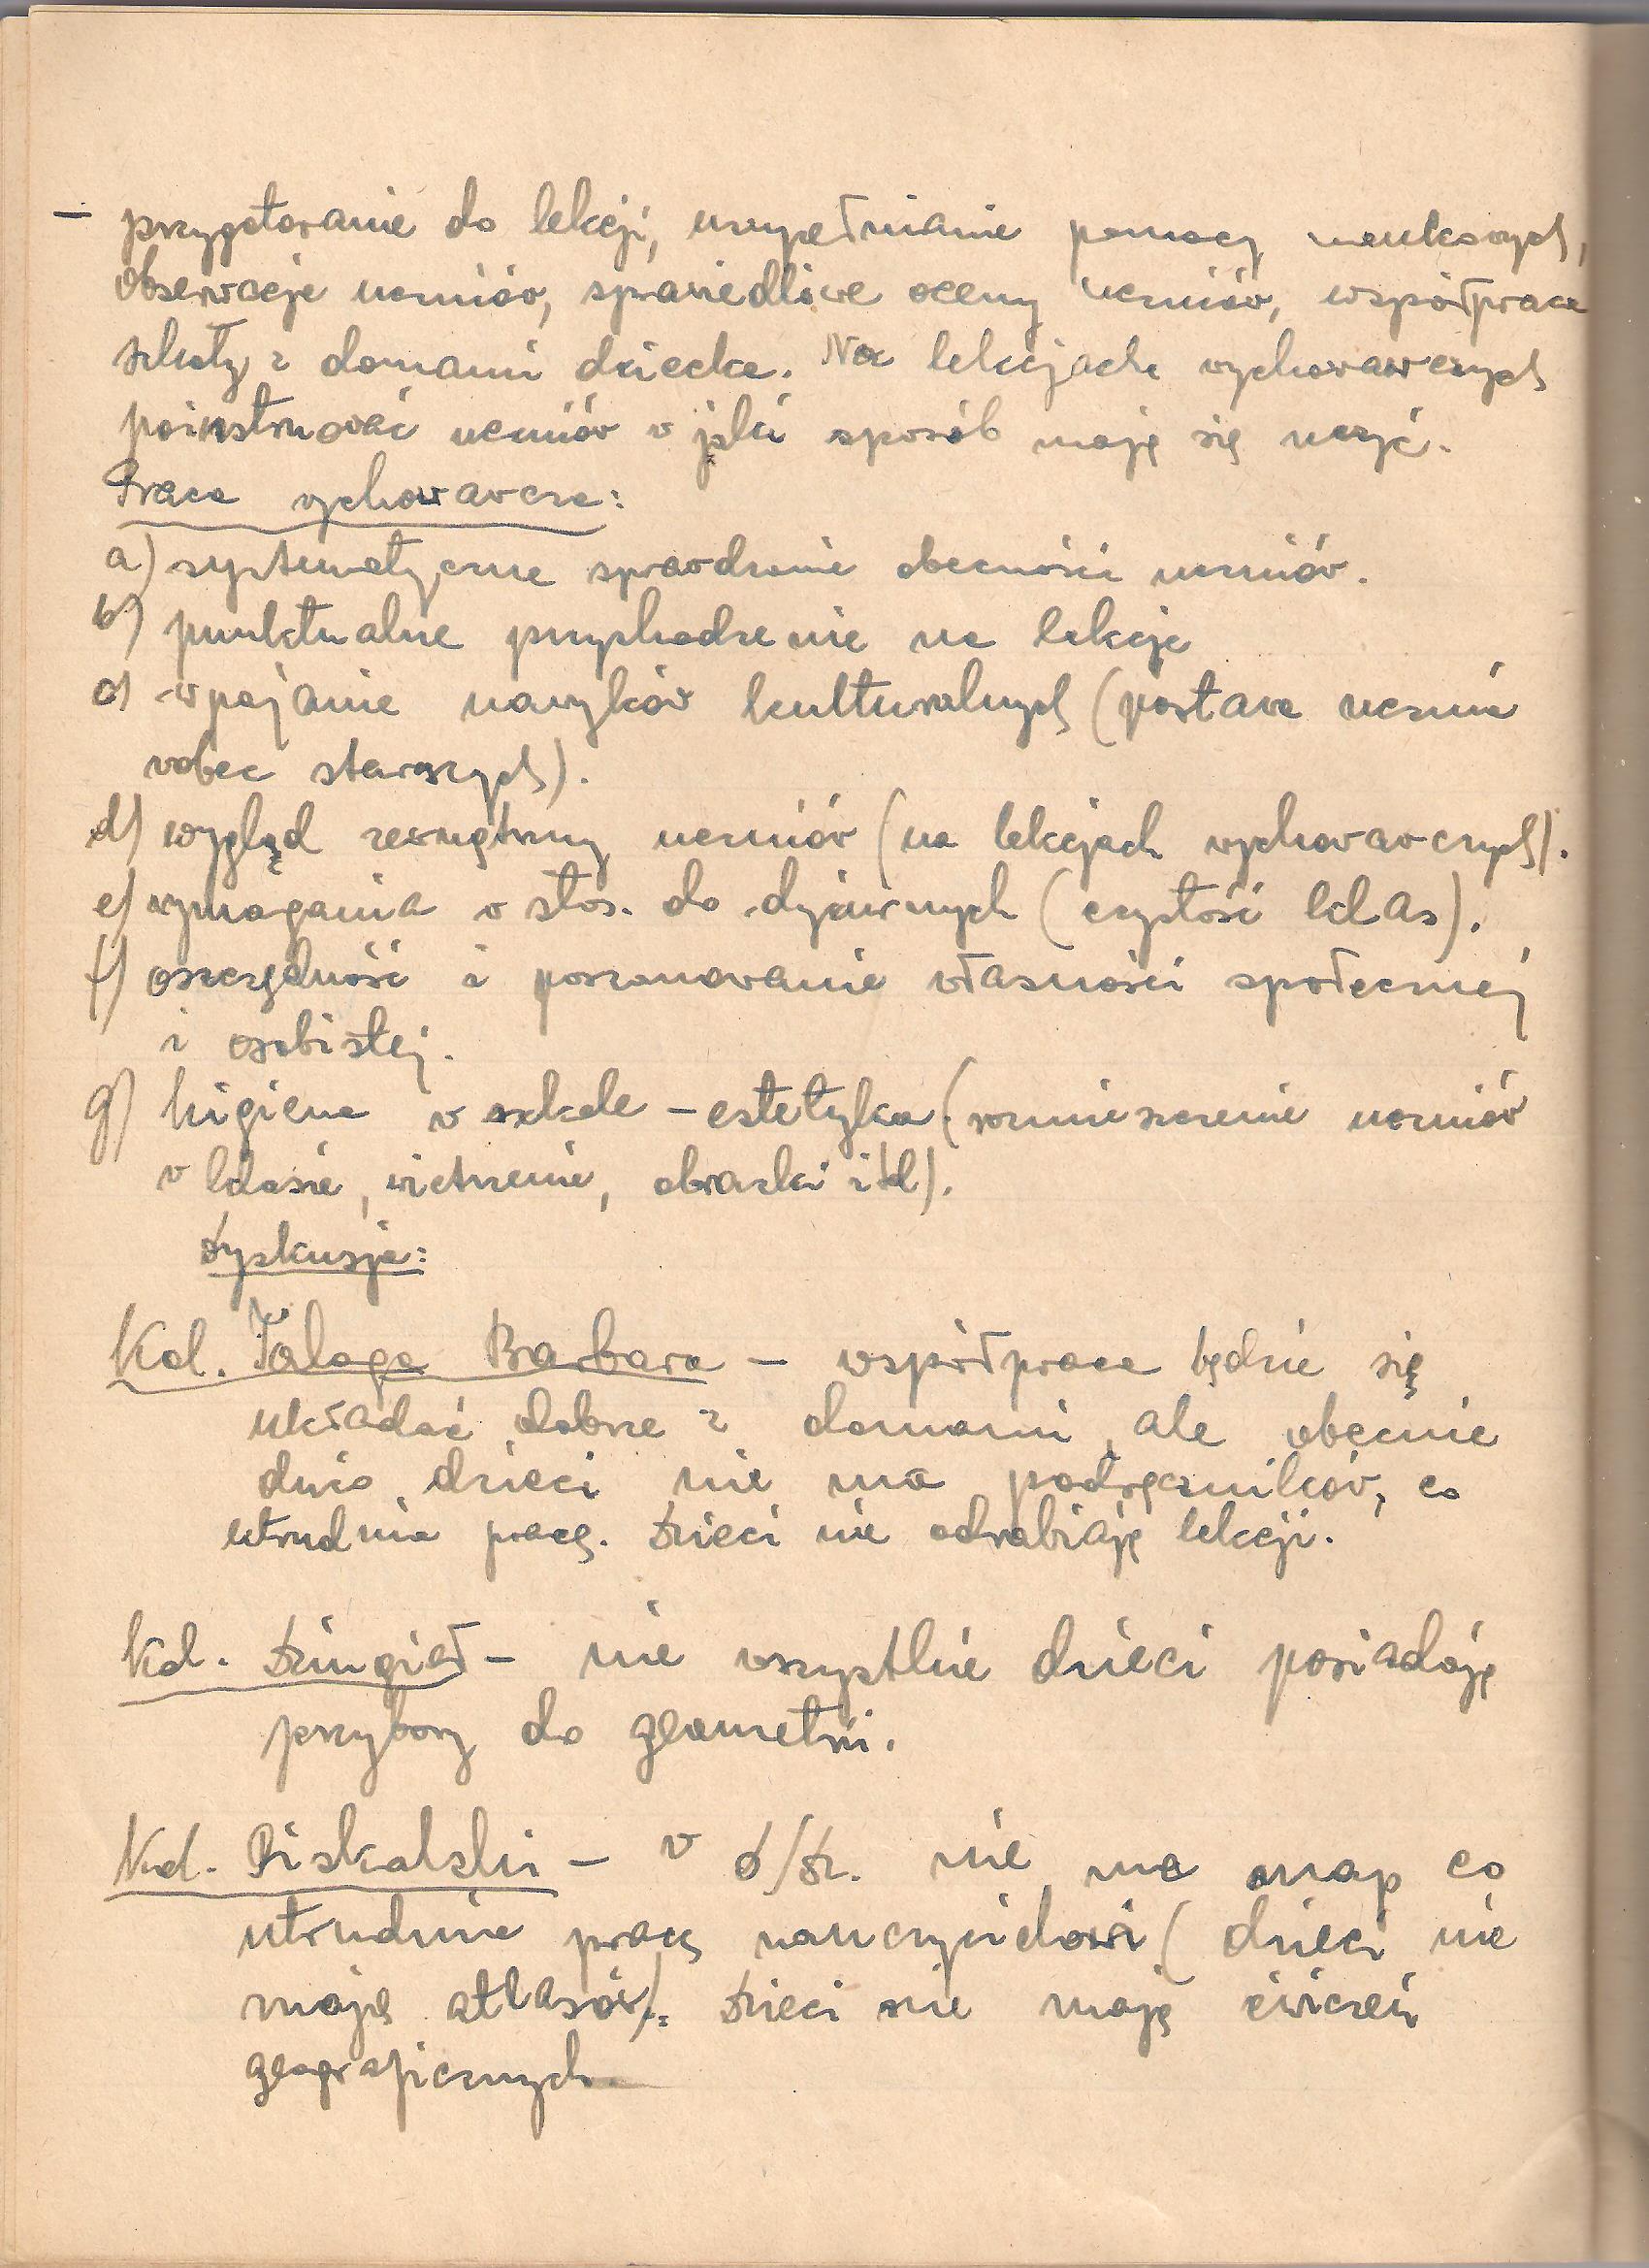 – przygotowanie do lekcji, uzupełnianie pomocy naukowych,
obserwacje uczniów, sprawiedliwe oceny uczniów, współpraca
szkoły z domami dziecka. Na lekcjach wychowawczych
poinstruować uczniów w jaki sposób mają się uczyć.
Praca wychowawcza:
a) systematyczne sprawdzanie obecności uczniów.
b) punktualne przychodzenie na lekcje
c) wpajanie nawyków kulturalnych (postawa ucznia
wobec starszych).
d) wygląd zewnętrzny uczniów (na lekcjach wychowawczych).
e) wymagania w stos. do dyżurnych (czystość klas).
f) oszczędność i poszanowanie własności społecznej
i osobistej.
g) higiena w szkole – estetyka (rozmieszczenie uczniów
w klasie, wietrzenie, obrazki itd).
Dyskusja:
Kol. Talaga Barbara – współpraca będzie się
układać dobrze z domami, ale obecnie
dużo dzieci nie ma podręczników, co
utrudnia pracę. Dzieci nie odrabiają lekcji.
Kol. Dzingiel – nie wszystkie dzieci posiadają
przybory do geometrii.
Kol. Piskalski – w d/dz. nie ma map co
utrudnia pracę nauczycielowi (dzieci nie
mają atlasów). Dzieci nie mają ćwiczeń
geograficznych.